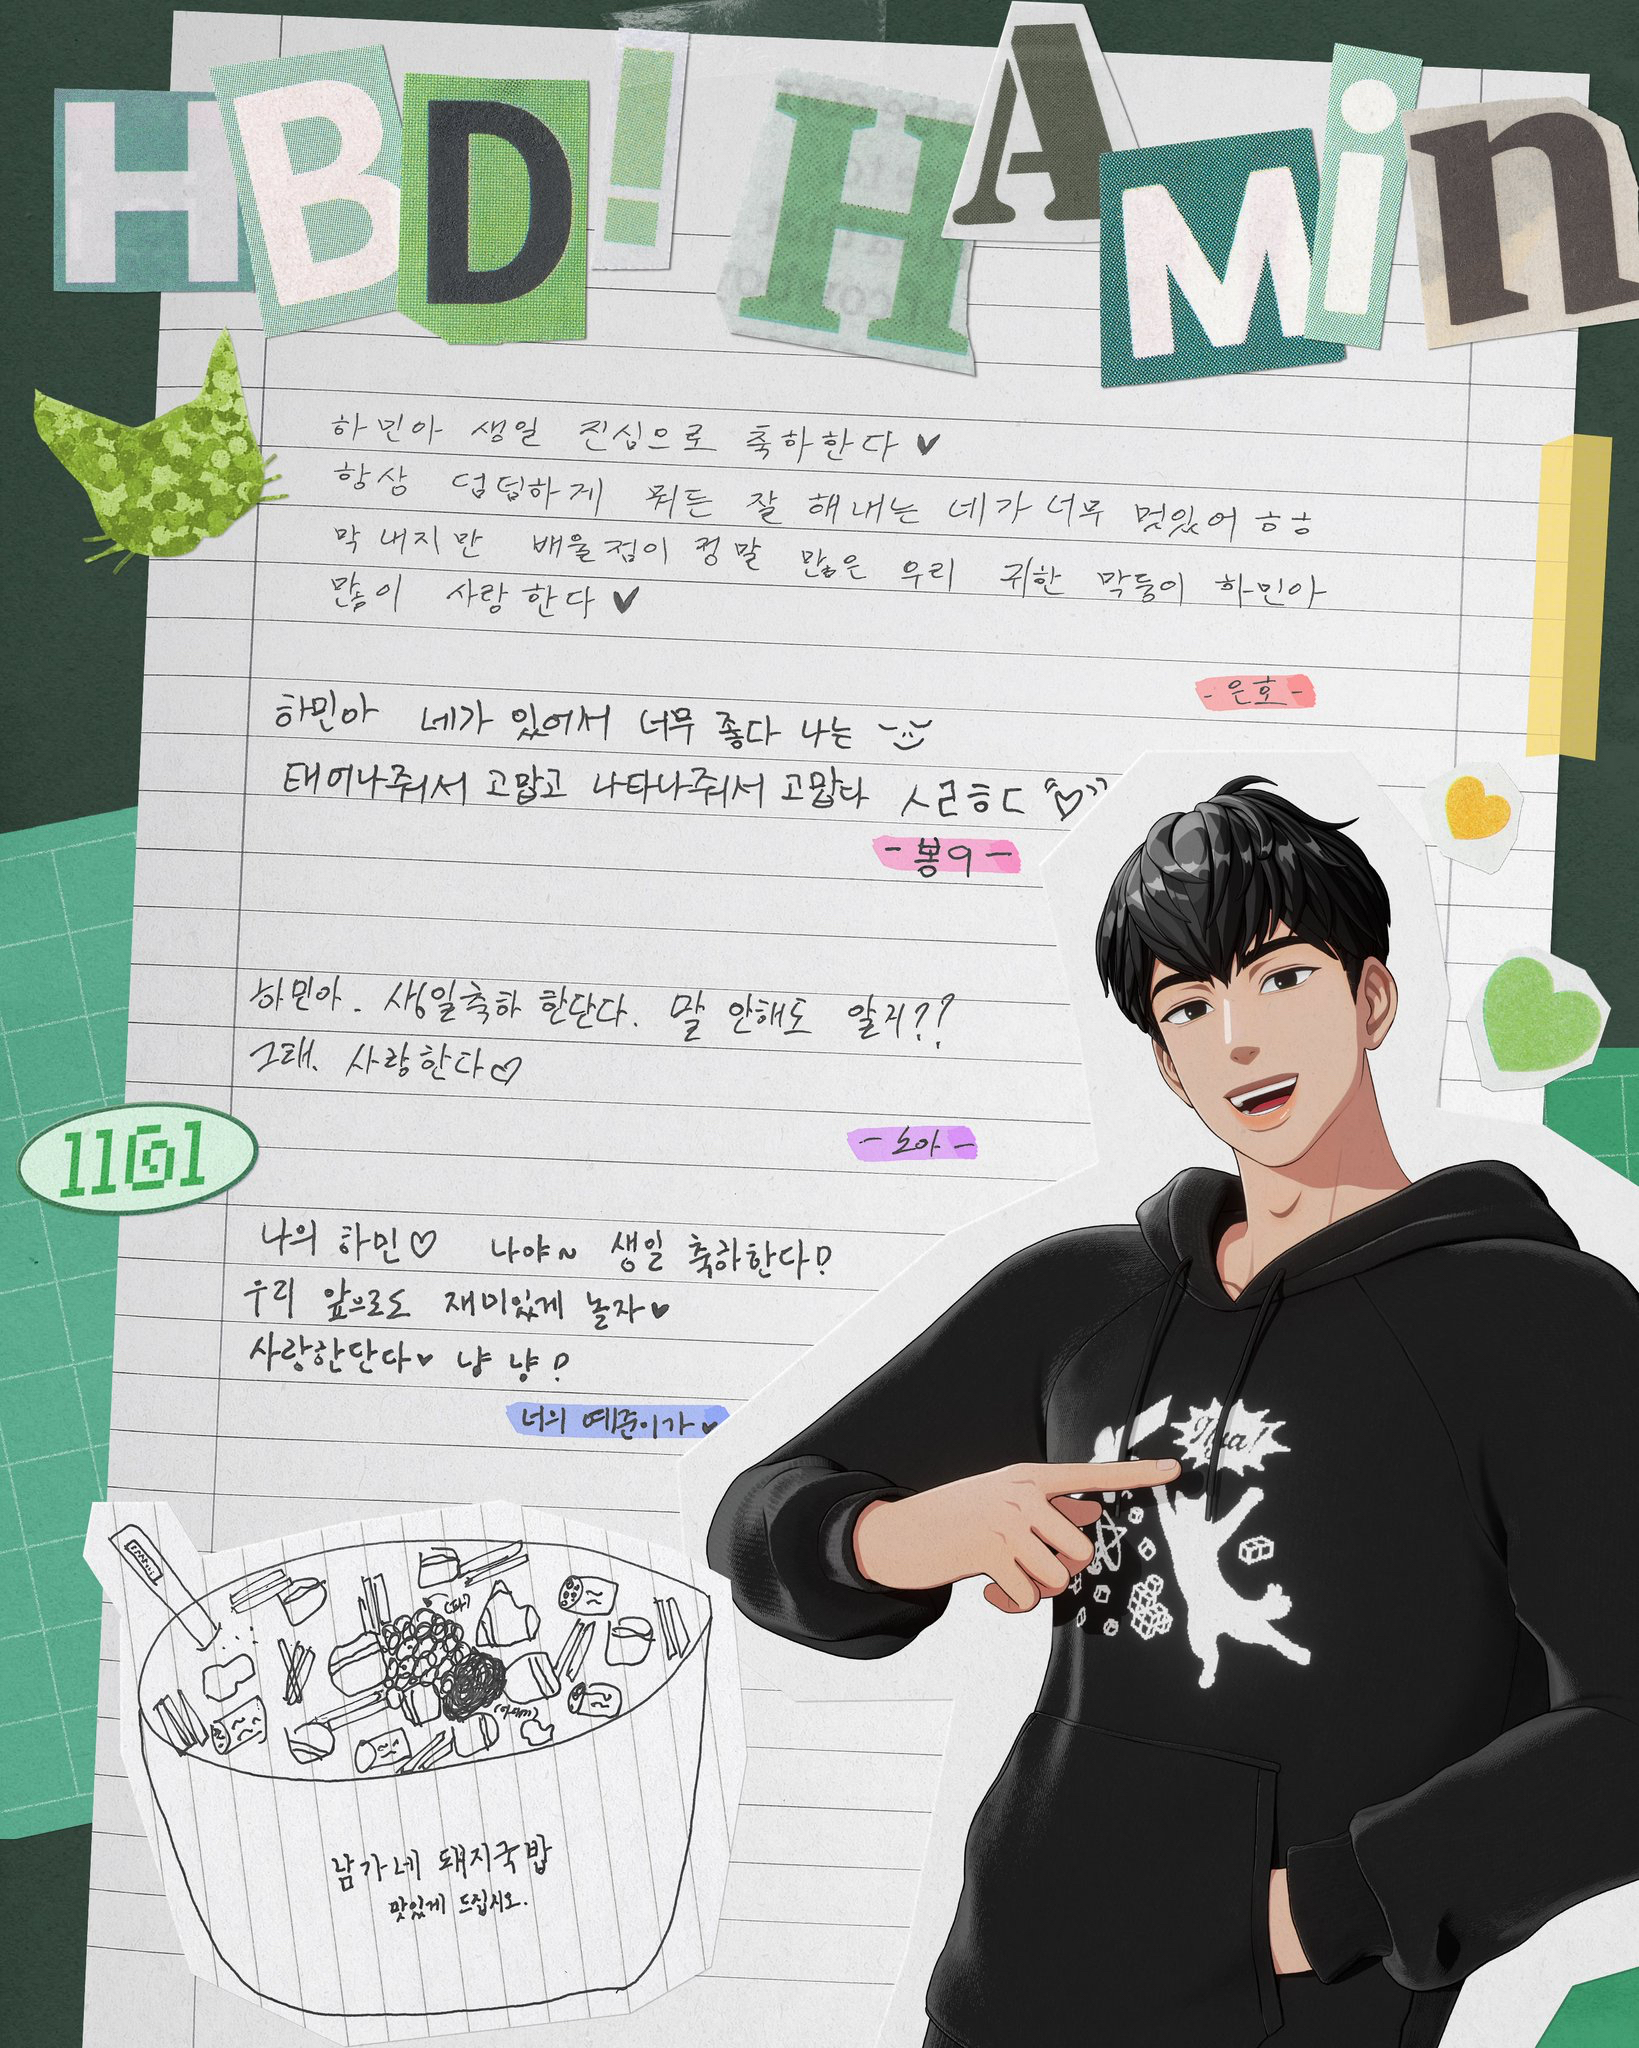 HBD! HAMin
하민아 생일 진심으로 축하한다♥
항상 덤덤하게 뭐든 잘 해내는 네가 너무 멋있어 ㅎㅎ
막내지만 배울점이 정말 많은 우리 귀한 막둥이 하민아
많이 사랑한다♥
- 은호 -
하민아 네가 있어서 너무 좋다 나는
태어나줘서 고맙고 나타나줘서 고맙다 ㅅㄹㅎㄷ "♡"
- 봉구 -
하민아. 생일축하 한단다. 말 안해도 알지??
그래. 사랑한다♡
- 노아 -
1101
나의 하민♡ 나야~ 생일 축하한다!
우리 앞으로도 재미있게 놀자♥
사랑한단다♥ 냥 냥!
너의 예준이가♥
Nya!
(파)
남가네 돼지국밥
맛있게 드십시오.